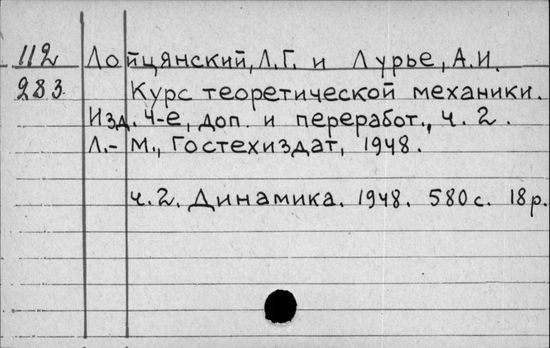 112 Лойцянский, Л.Г. и Лурье, А.И.
283 Курс теоретической механики.
Изд. 4-е, доп. и переработ., ч. 2.
Л.-М., Гостехиздат, 1948.
ч.2. Динамика. 1948. 580 с. 18 р.